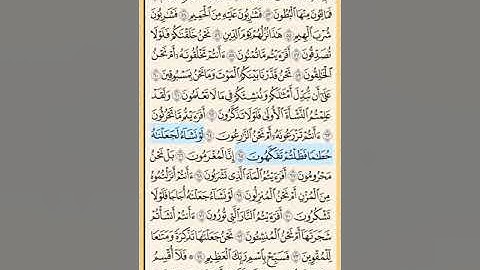 فَمَالِـُٔونَ مِنْهَا ٱلْبُطُونَ ۝ فَشَٰرِبُونَ عَلَيْهِ مِنَ ٱلْحَمِيمِ ۝ فَشَٰرِبُونَ
شُرْبَ ٱلْهِيمِ ۝ هَٰذَا نُزُلُهُمْ يَوْمَ ٱلدِّينِ ۝ نَحْنُ خَلَقْنَٰكُمْ فَلَوْلَا
تُصَدِّقُونَ ۝ أَفَرَءَيْتُم مَّا تُمْنُونَ ۝ ءَأَنتُمْ تَخْلُقُونَهُۥٓ أَمْ نَحْنُ
ٱلْخَٰلِقُونَ ۝ نَحْنُ قَدَّرْنَا بَيْنَكُمُ ٱلْمَوْتَ وَمَا نَحْنُ بِمَسْبُوقِينَ ۝
عَلَىٰٓ أَن نُّبَدِّلَ أَمْثَٰلَكُمْ وَنُنشِئَكُمْ فِى مَا لَا تَعْلَمُونَ ۝ وَلَقَدْ
عَلِمْتُمُ ٱلنَّشْأَةَ ٱلْأُولَىٰ فَلَوْلَا تَذَكَّرُونَ ۝ أَفَرَءَيْتُم مَّا تَحْرُثُونَ
۝ ءَأَنتُمْ تَزْرَعُونَهُۥٓ أَمْ نَحْنُ ٱلزَّٰرِعُونَ ۝ لَوْ نَشَآءُ لَجَعَلْنَٰهُ
حُطَٰمًا فَظَلْتُمْ تَفَكَّهُونَ ۝ إِنَّا لَمُغْرَمُونَ ۝ بَلْ نَحْنُ
مَحْرُومُونَ ۝ أَفَرَءَيْتُمُ ٱلْمَآءَ ٱلَّذِى تَشْرَبُونَ ۝ ءَأَنتُمْ أَنزَلْتُمُوهُ
مِنَ ٱلْمُزْنِ أَمْ نَحْنُ ٱلْمُنزِلُونَ ۝ لَوْ نَشَآءُ جَعَلْنَٰهُ أُجَاجًا فَلَوْلَا
تَشْكُرُونَ ۝ أَفَرَءَيْتُمُ ٱلنَّارَ ٱلَّتِى تُورُونَ ۝ ءَأَنتُمْ أَنشَأْتُمْ
شَجَرَتَهَآ أَمْ نَحْنُ ٱلْمُنشِـُٔونَ ۝ نَحْنُ جَعَلْنَٰهَا تَذْكِرَةً وَمَتَٰعًا
لِّلْمُقْوِينَ ۝ فَسَبِّحْ بِٱسْمِ رَبِّكَ ٱلْعَظِيمِ ۝ ۞ فَلَآ أُقْسِمُ